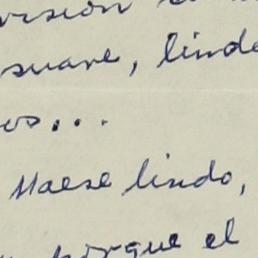 visión
suave, linde
os...
Maese lindo,
porque el